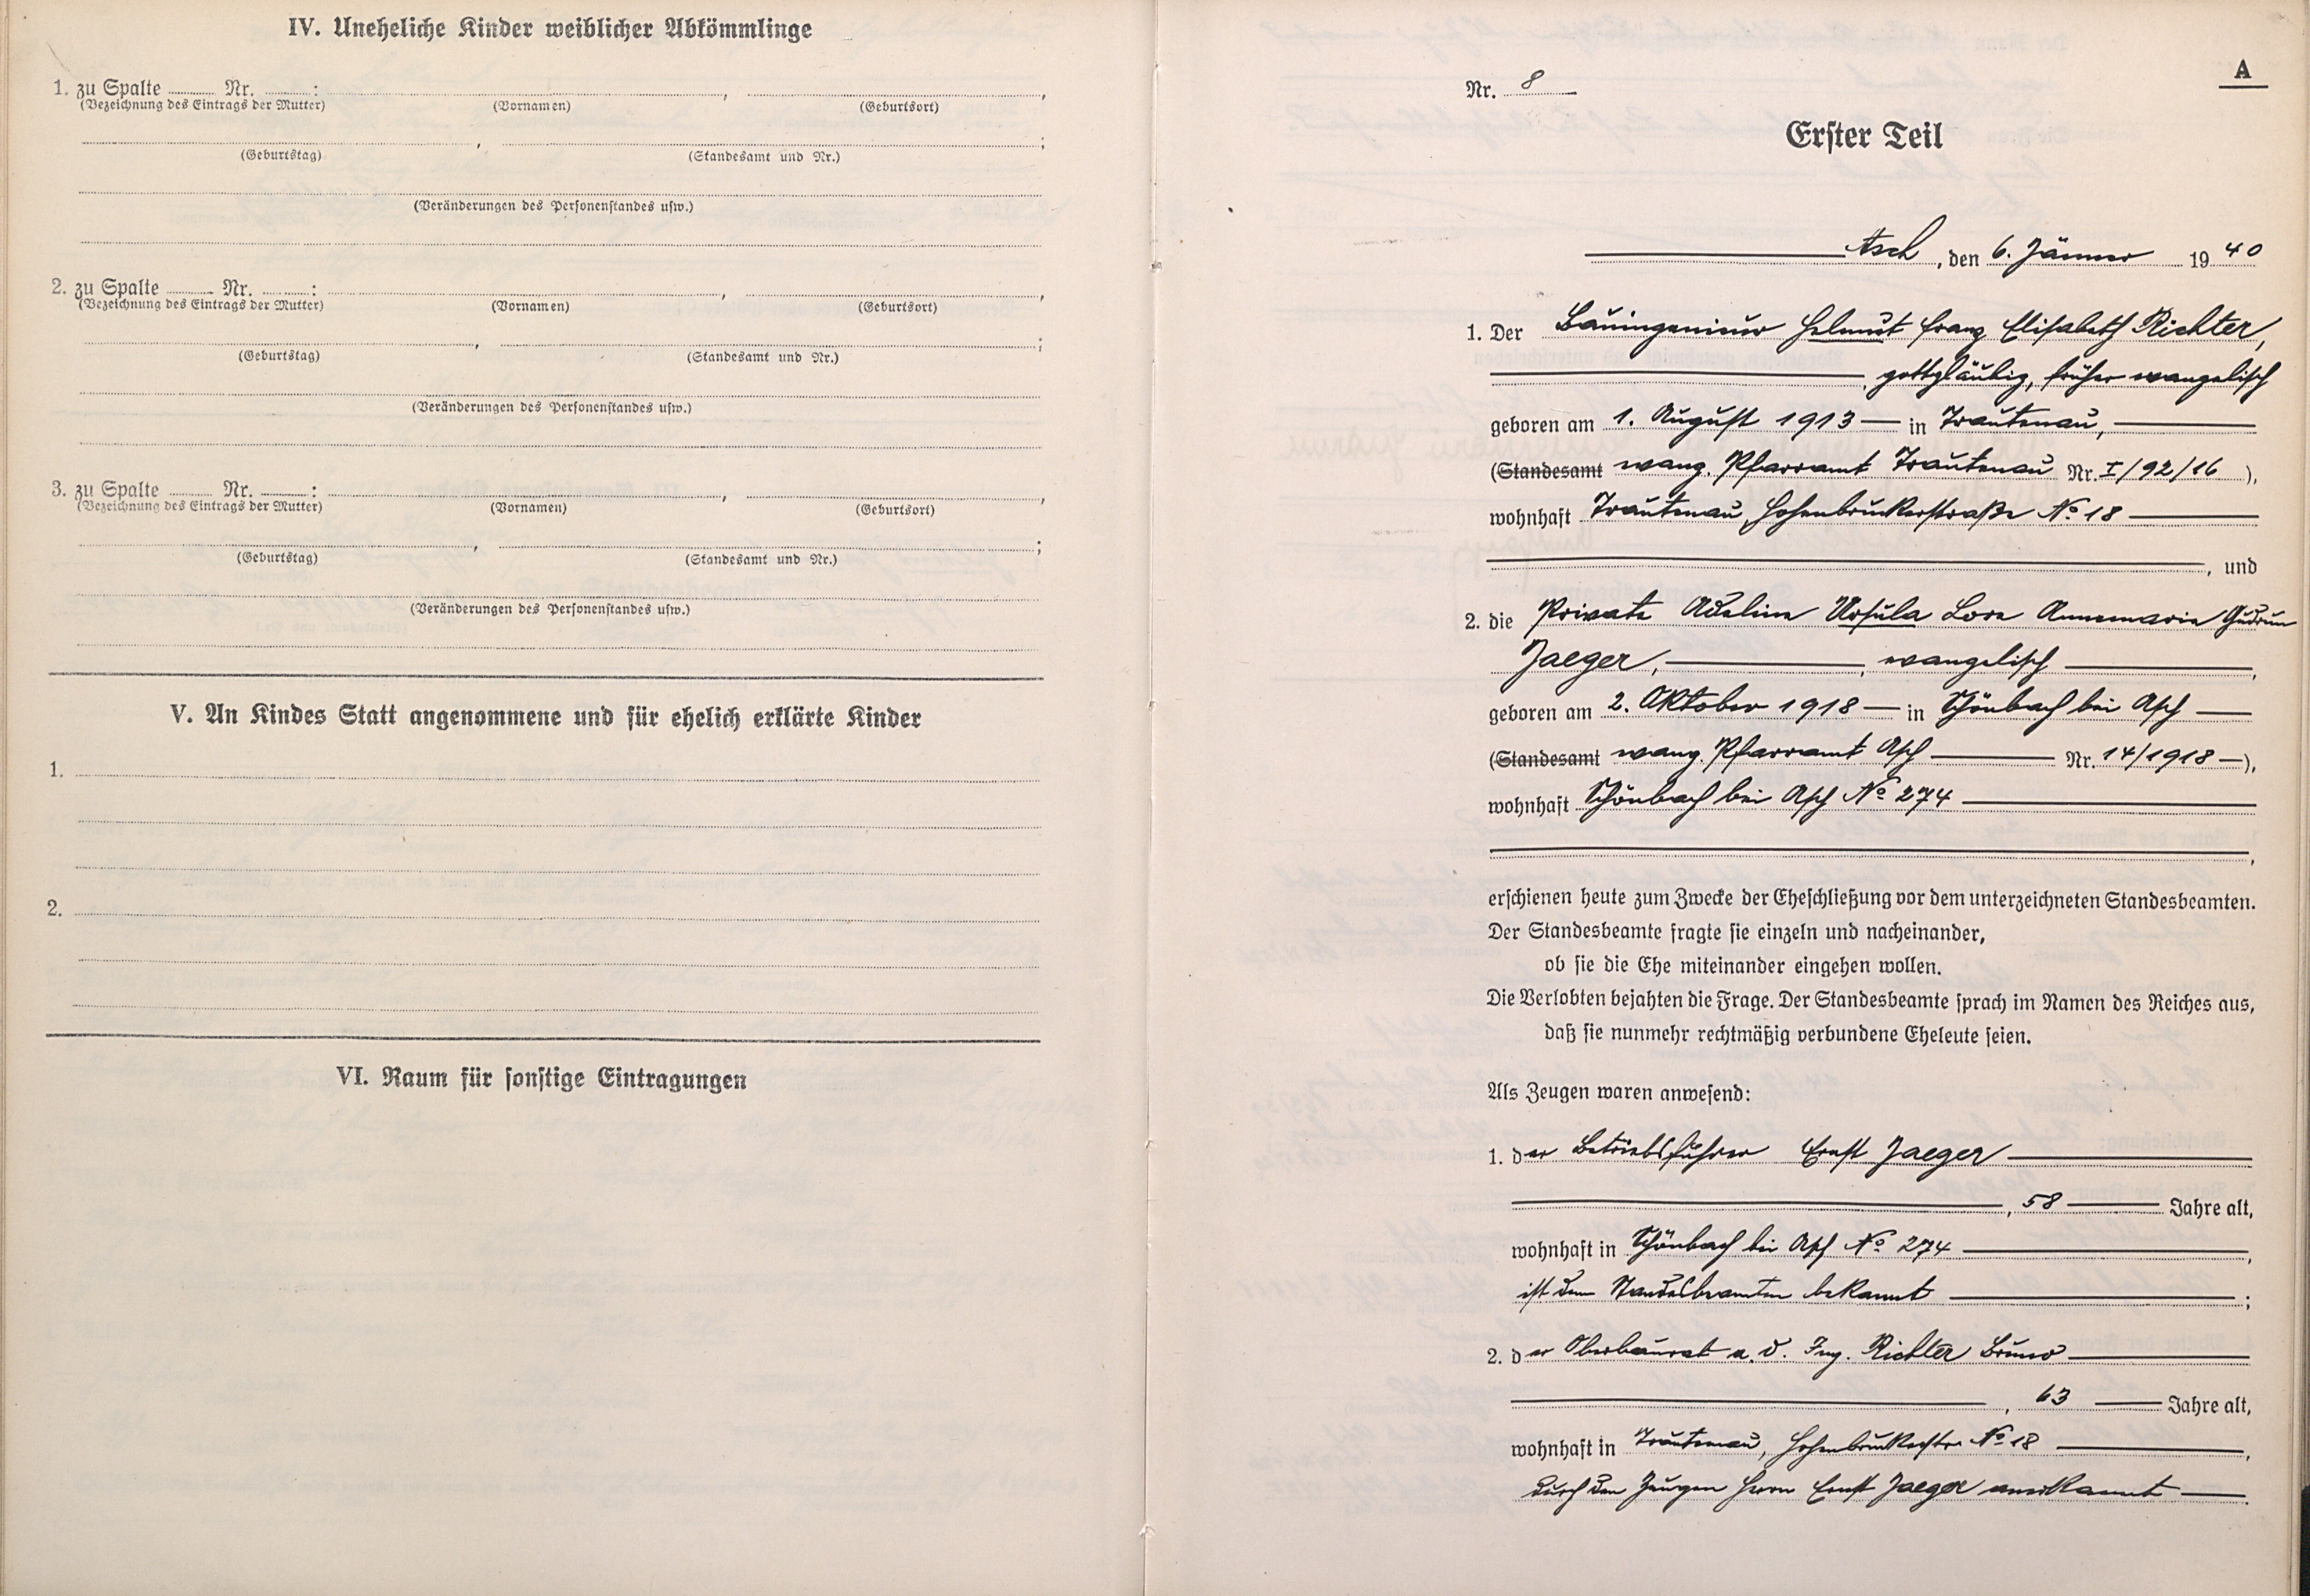 IV. Uneheliche Kinder weiblicher Abkömmlinge
1. zu Spalte Nr. : , ,
(Bezeichnung des Eintrags der Mutter) (Vornamen) (Geburtsort)
, ;
(Geburtstag) (Standesamt und Nr.)
(Veränderungen des Personenstandes usw.)
2. zu Spalte Nr. : , ,
(Bezeichnung des Eintrags der Mutter) (Vornamen) (Geburtsort)
, ;
(Geburtstag) (Standesamt und Nr.)
(Veränderungen des Personenstandes usw.)
3. zu Spalte Nr. : , ,
(Bezeichnung des Eintrags der Mutter) (Vornamen) (Geburtsort)
, ;
(Geburtstag) (Standesamt und Nr.)
(Veränderungen des Personenstandes usw.)
V. An Kindes Statt angenommene und für ehelich erklärte Kinder
1.
2.
VI. Raum für sonstige Eintragungen
A
Nr. 8
Erster Teil
Asch, den 6. Jänner 1940
1. Der Bauingenieur Helmut Franz Elisabeth Richter,
, gottgläubig, früher evangelisch
geboren am 1. August 1913 — in Trautenau,
(Standesamt evang. Pfarramt Trautenau Nr. I/92/16),
wohnhaft Trautenau, Hohenbruckerstraße No 18
, und
2. die Private Adeline Ursula Lore Annemarie Gudrun
Jaeger, , evangelisch ,
geboren am 2. Oktober 1918 — in Schönbach bei Asch
(Standesamt evang. Pfarramt Asch Nr. 14/1918 —),
wohnhaft Schönbach bei Asch No 274
,
erschienen heute zum Zwecke der Eheschließung vor dem unterzeichneten Standesbeamten.
Der Standesbeamte fragte sie einzeln und nacheinander,
ob sie die Ehe miteinander eingehen wollen.
Die Verlobten bejahten die Frage. Der Standesbeamte sprach im Namen des Reiches aus,
daß sie nunmehr rechtmäßig verbundene Eheleute seien.
Als Zeugen waren anwesend:
1. der Betriebsführer Ernst Jaeger
, 58 Jahre alt,
wohnhaft in Schönbach bei Asch No 274 ,
ist dem Standesbeamten bekannt ;
2. der Oberbaurat a. d. Ing. Richter Bruno
, 63 Jahre alt,
wohnhaft in Trautenau, Hohenbruckerstr. No 18 ,
durch den Zeugen Herrn Ernst Jaeger anerkannt .